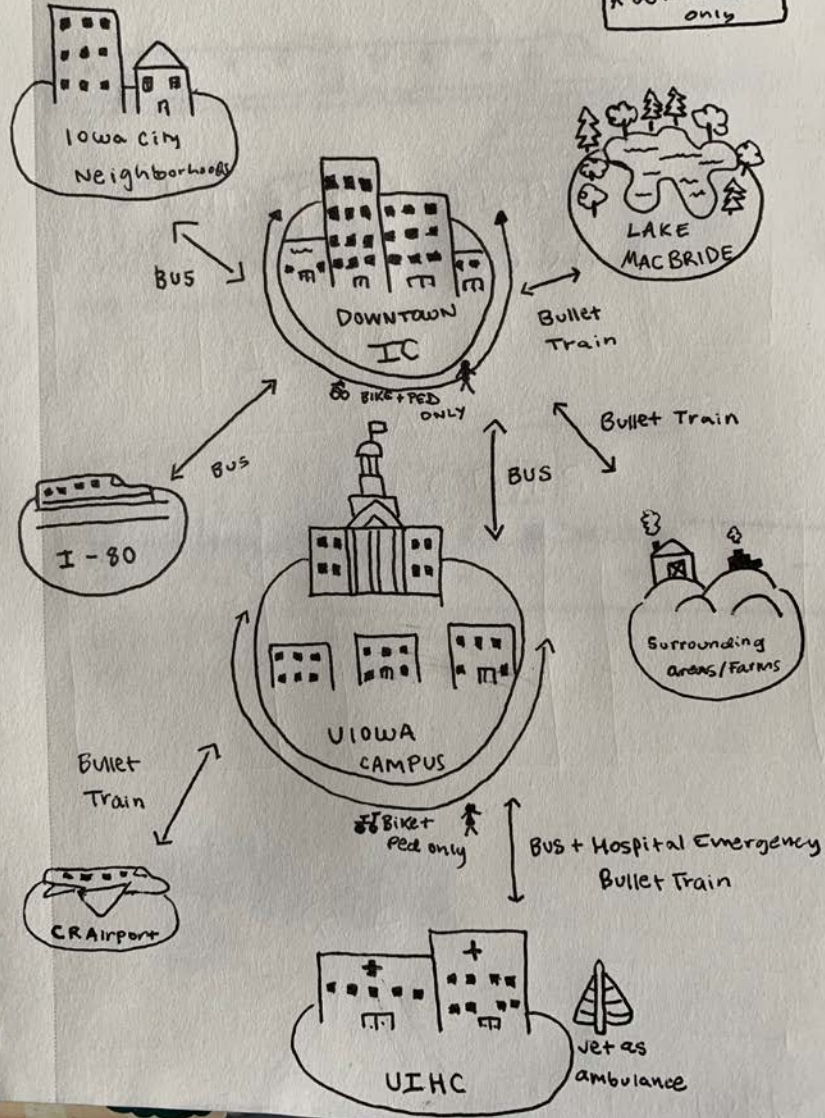 only
Iowa City
Neighborhoods
LAKE
MACBRIDE
BUS
DOWNTOWN
IC
Bullet
Train
BIKE + PED
ONLY
Bullet Train
BUS
BUS
I-80
Surrounding
areas/Farms
UIOWA
CAMPUS
Bullet
Train
Bike +
Ped only
BUS + Hospital Emergency
Bullet Train
CR Airport
UIHC
Jet as
ambulance